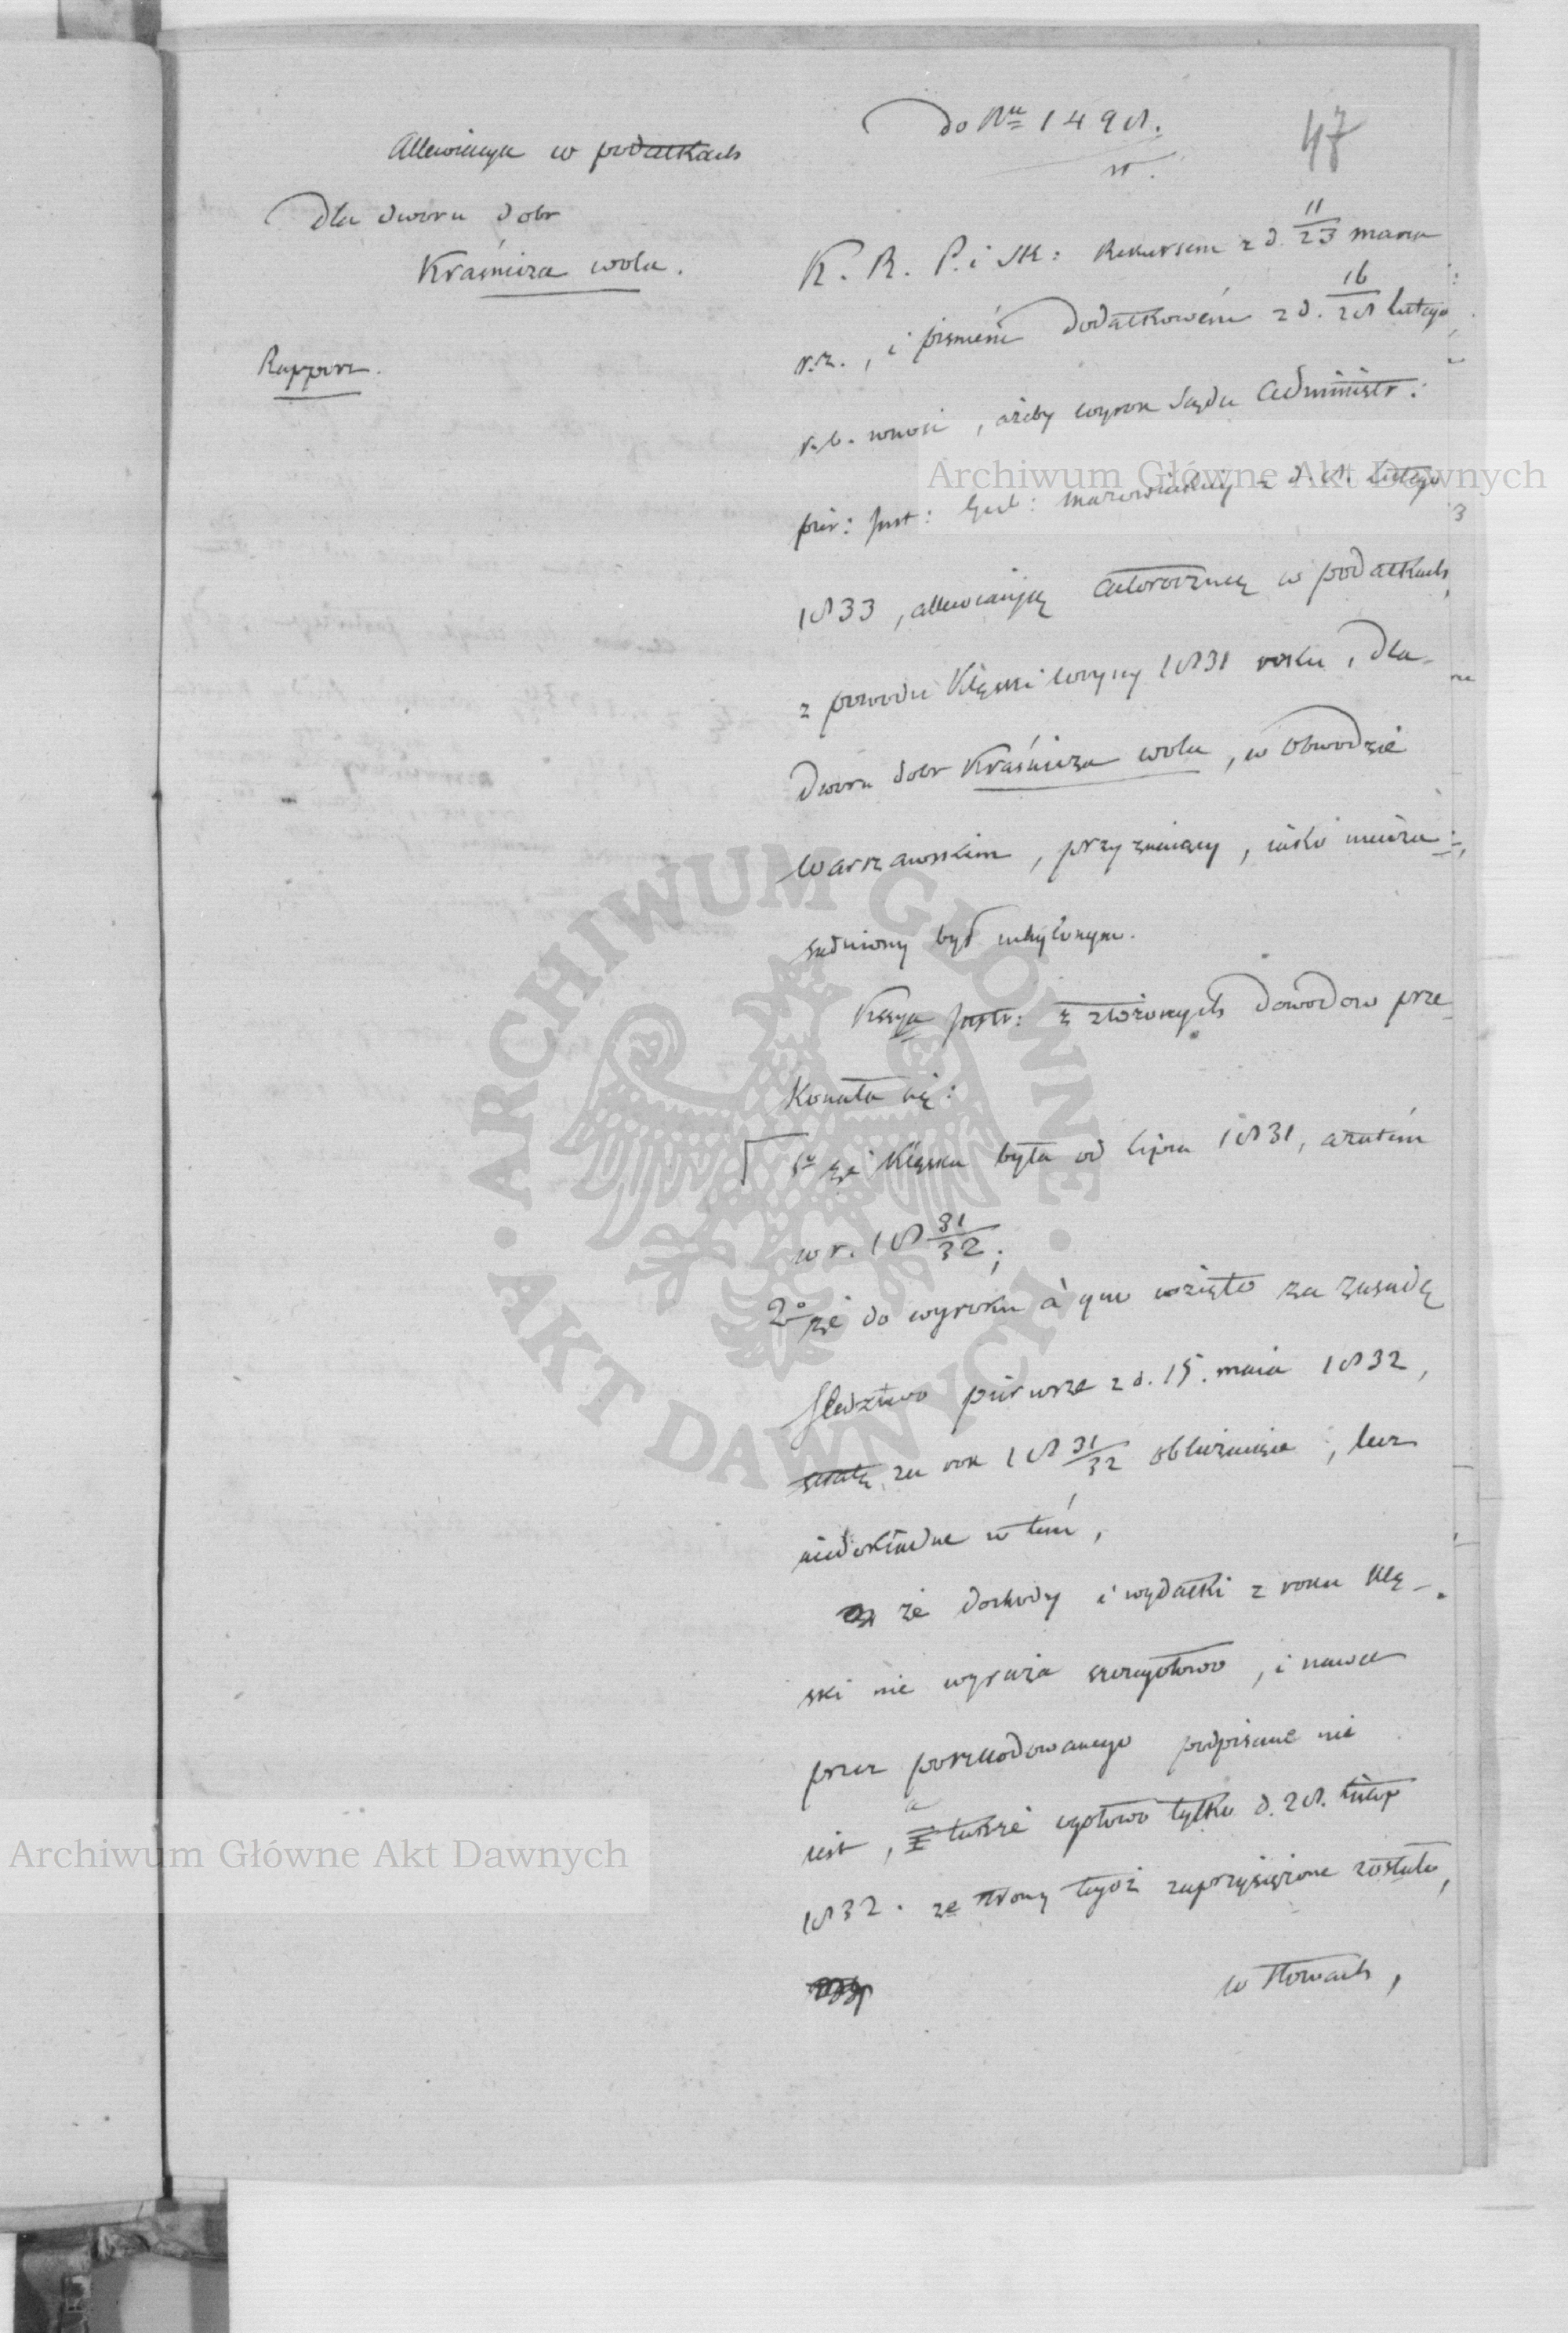 Allewiacya w podatkach
dla dworu dobr
Kraśnicza wola.
Rapport.
do Nru 1498.
47
K. R. P. i Sk: Rekursem z d. 11/23 marca
r. z., i pismem dodatkowem z d. 16/28 lutego
r. b. wnosi, ażeby wyrok Sądu Administr:
pier: Inst: Gub: Mazowieckiej z d. 8. lutego
1833, allewiacyą całoroczną w podatkach,
z powodu klęski wojny 1831 roku, dla
dworu dobr Kraśnicza wola, w Obwodzie
Warszawskim, przyznaiący, iako nieuza-
sadniony był uchylonym.
Kssya Instr: z złożonych dowodow prze
konała się:
1o że klęska była od lipca 1831, a zatem
w r. 18 31/32;
2o że do wyroku à quo wzięto za zasadę
śledztwo pierwsze z d. 15. maia 1832,
stratę za rok 18 31/32 obliczaiące, lecz
niedokładne w tem,
że dochody i wydatki z roku klę-
ski nie wyraża szczegółowo, i nawet
przez poszkodowanego podpisane nie
iest, a także ogółowo tylko d. 28. lutego
1832. ze strony tegoż zaprzysiężone zostało,
w słowach,
Archiwum Główne Akt Dawnych
Archiwum Główne Akt Dawnych
ARCHIWUM GŁÓWNE AKT DAWNYCH